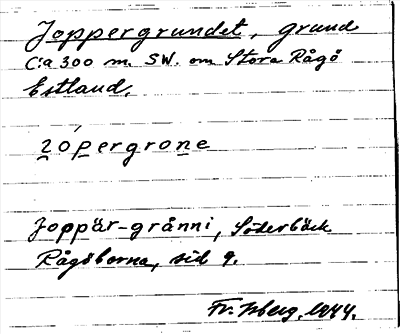 Joppergrundet, grund
C:a 300 m. SW. om Stora Rågö
Estland.
Joppär-grånni, Söderbäck
Rågöborna, sid 9.
Fr. Isberg. 1944.